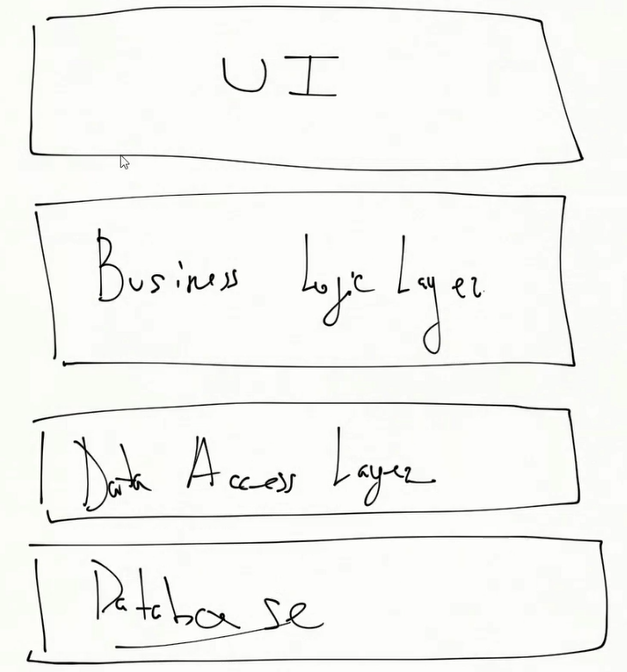 UI
Business Logic Layer
Data Access Layer
Database